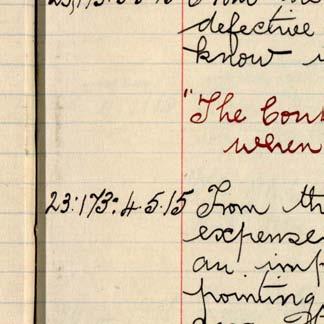 defective
know
"The Cour
when
23:173:4.5.15 From th
expense
an imp
pointing